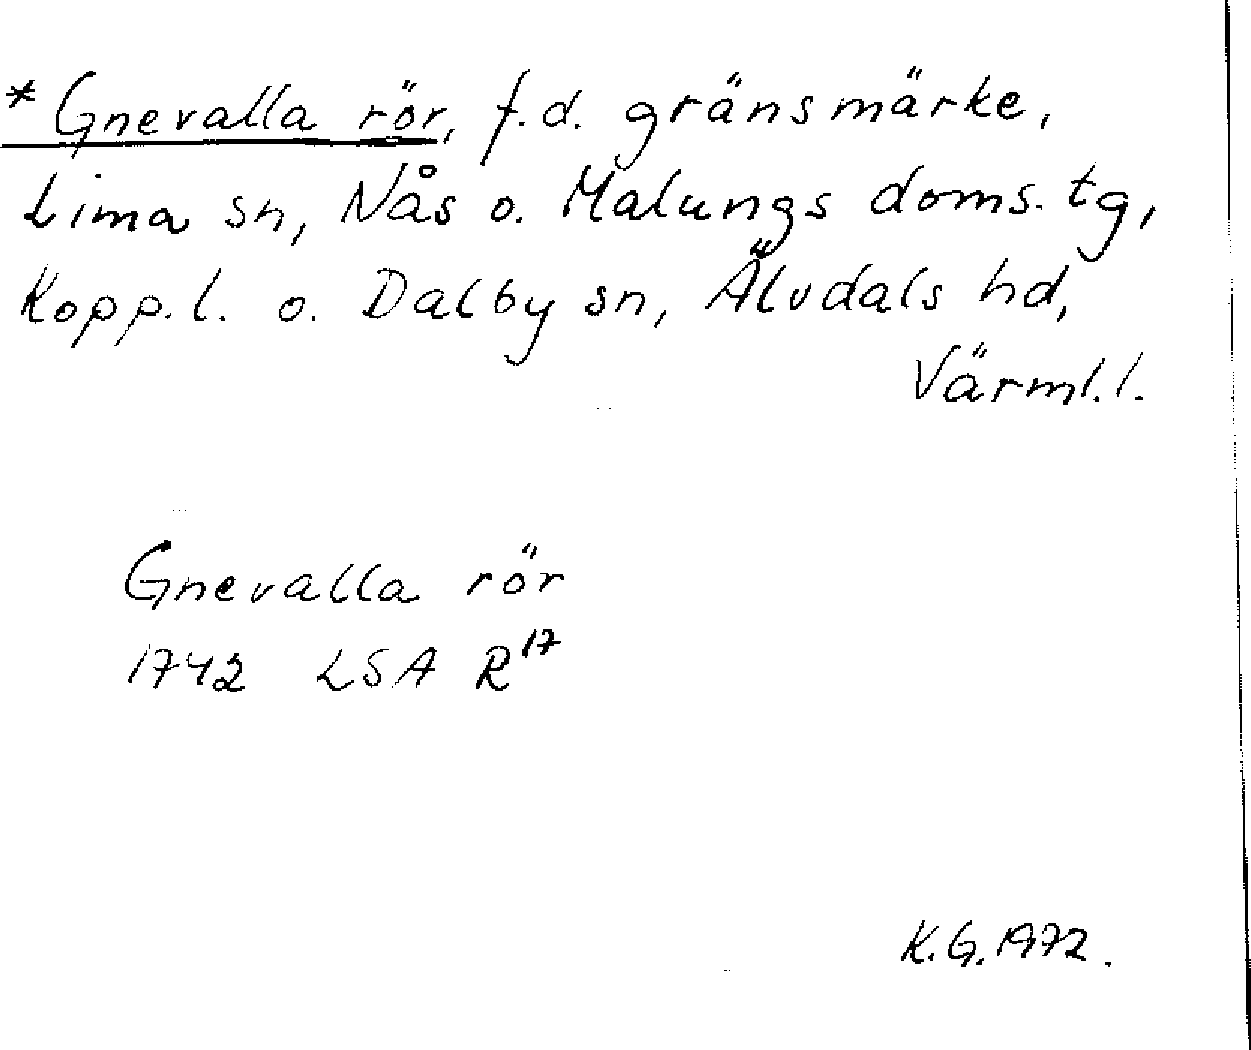 * Gnevalla rör, f.d. gränsmärke,
Lima sn, Nås o. Malungs doms. tg,
Kopp. l. o. Dalby sn, Älvdals hd,
Värml. l.
Gnevalla rör
1742 LSA R17
K.G. 1972.